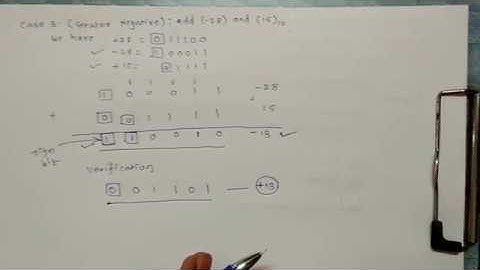 Case 3: (Greater negative): add (-28) and (15)10
We have +28 = 0 1 1 1 0 0
✓ -28 = 1 0 0 0 1 1
✓ +15 = 0 1 1 1 1
1 1 1 1
1 0 0 0 1 1 -28
+ 0 0 1 1 1 1 + 15
1 1 0 0 1 0 -13 ✓
sign bit
Verification
0 0 1 1 0 1 — +13